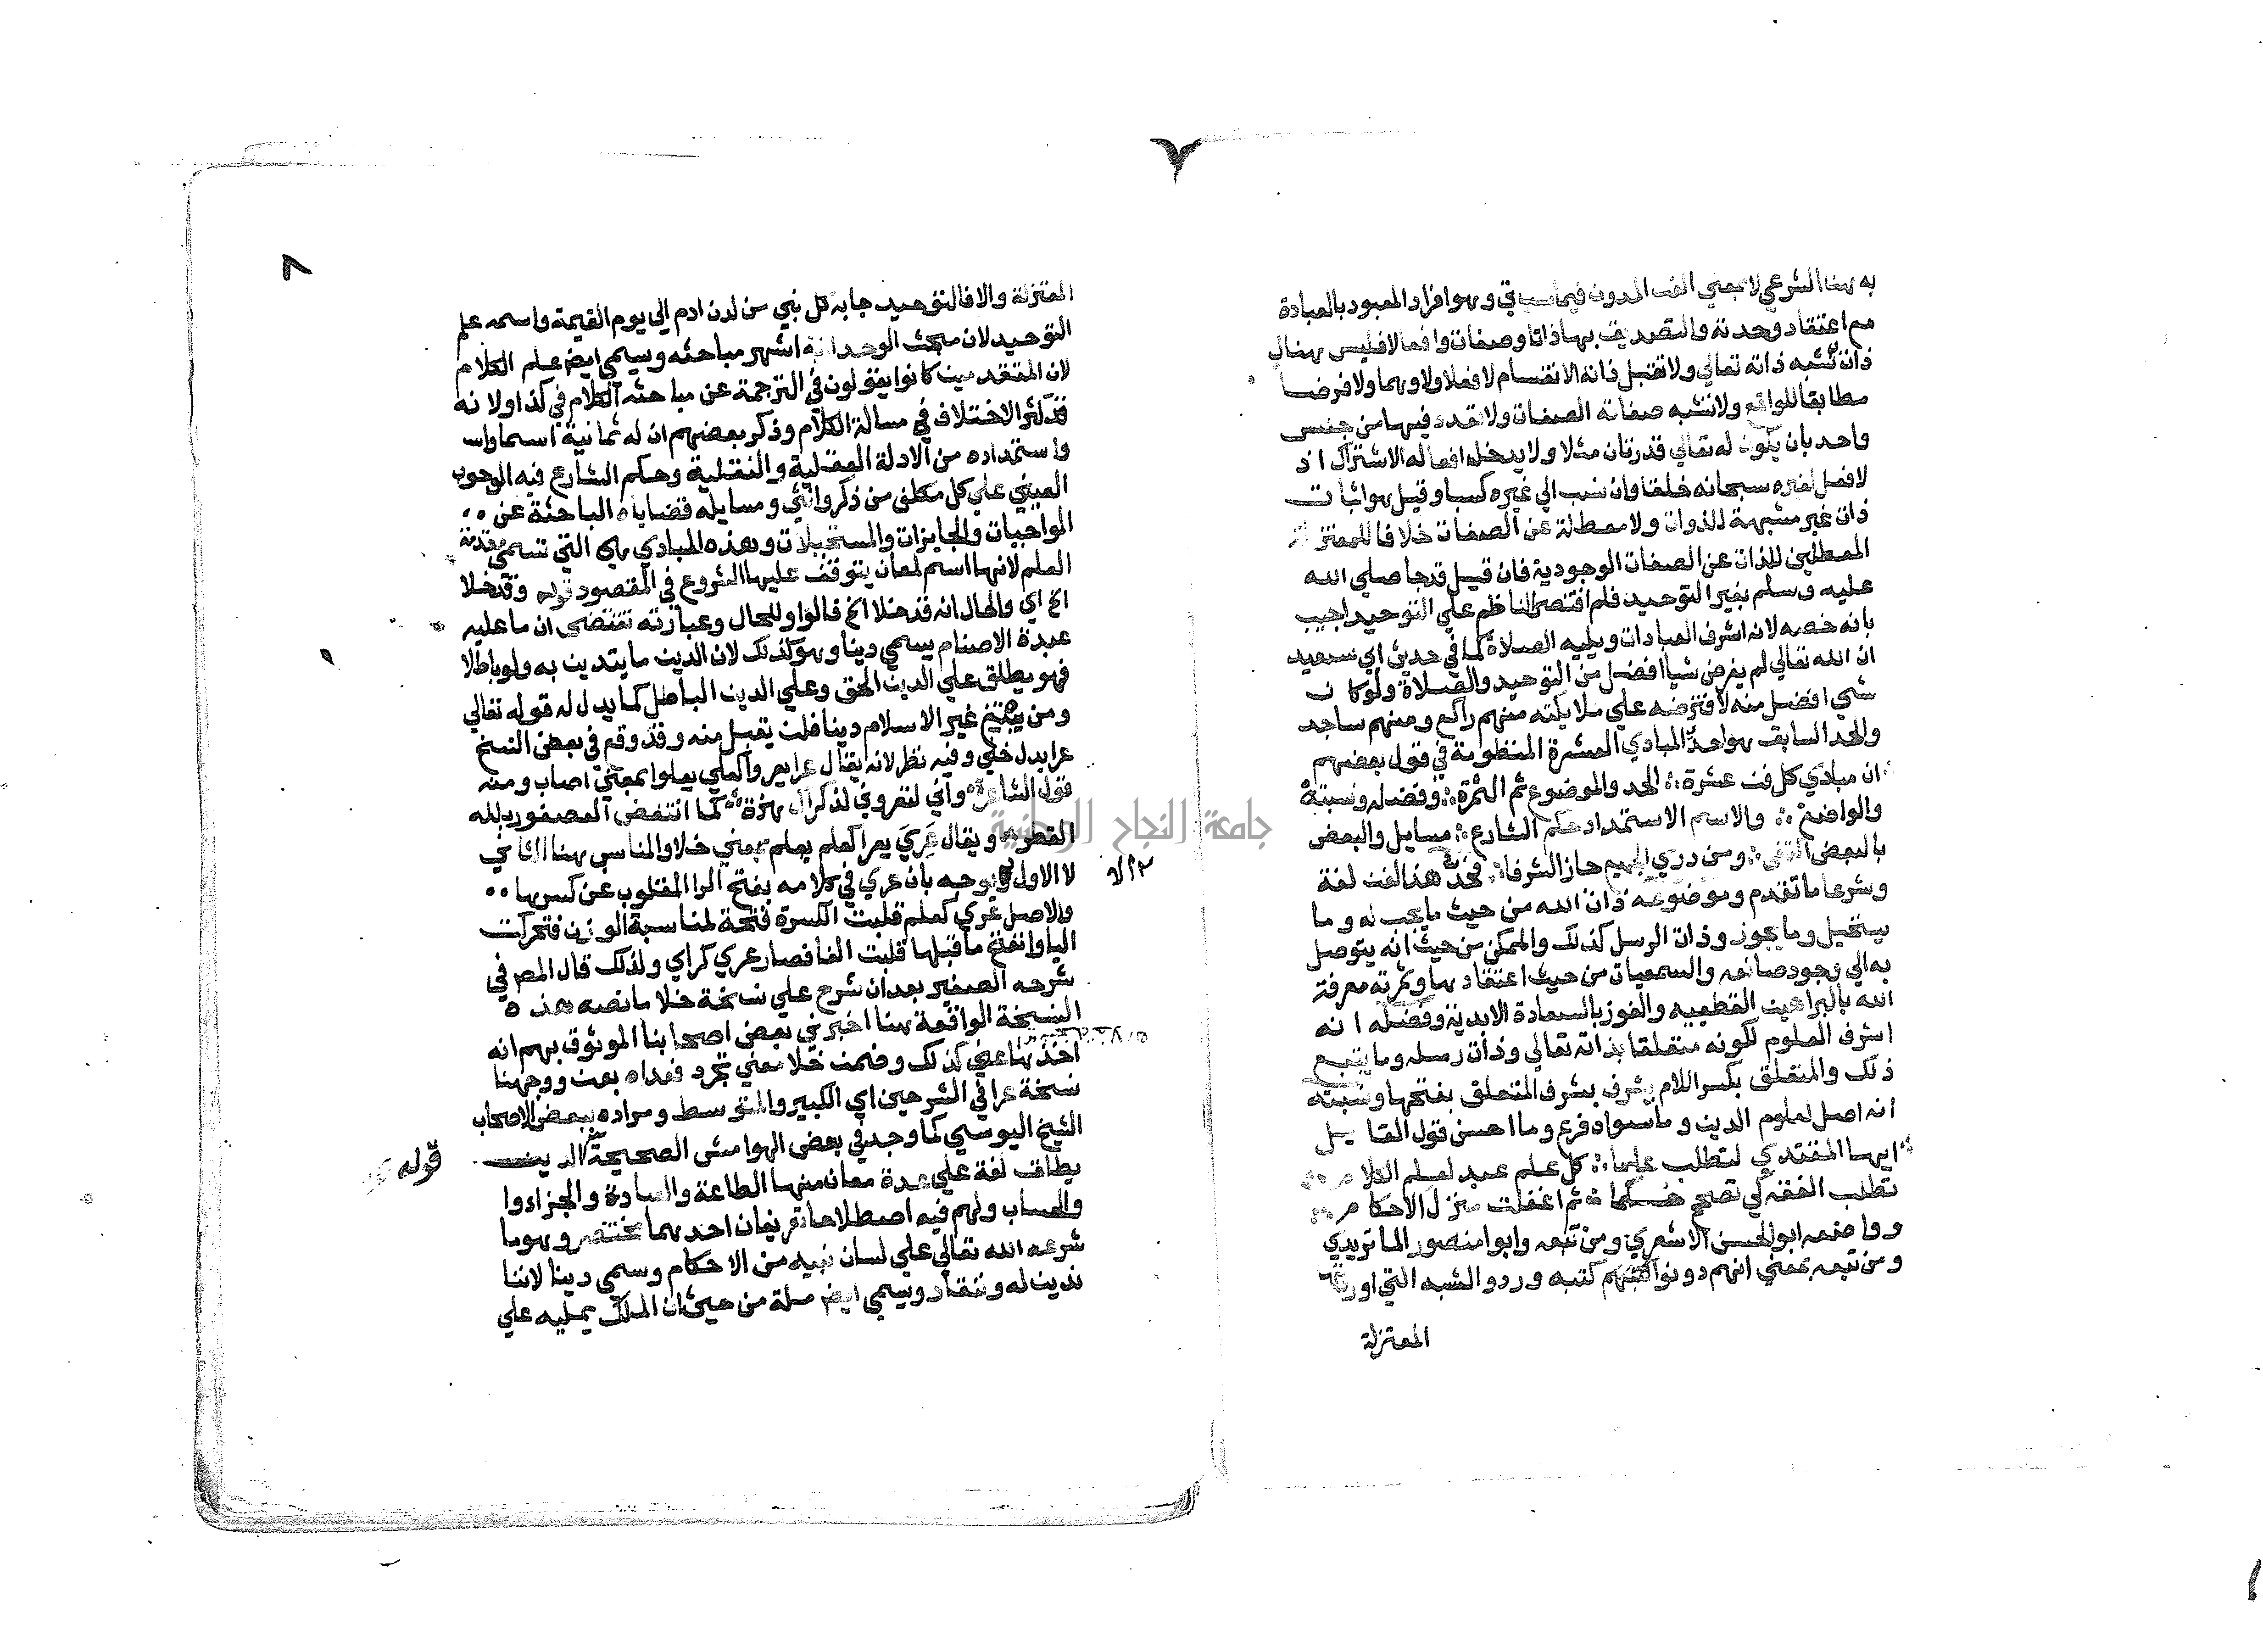 ٧
به هنا الشرعي لا بمعني الفن المدون فيما سيـ تي وهو افراد المعبود بالعبادة
مع اعتقاد وحدته والتصديق بها ذاتا وصفات وافعالا فليس هناك
ذات تشبه ذاته تعالي ولا تقبل ذاته الانقسام لا فعلا ولا وهما ولا فرضا
مطابقا للواقع ولا تشبه صفاته الصفات ولا تعدد فيها من جنس
واحد بان يكون له تعالي قدرتان مثلا ولا يدخل افعاله الاشتراك اذ
لا فعل لغيره سبحانه خلقا وان نسب الي غيره كسبا وقيل هو اثبات
ذات غير مشبهة للذوات ولا معطلة عن الصفات خلافا للمعتزلة
المعطلين للذات عن الصفات الوجودية فان قيل قد جا صلي الله
عليه وسلم بغير التوحيد فلم اقتصر الناظم علي التوحيد اجيب
بانه خصه لانه اشرف العبادات ويليه الصلاة كما في حديث ابي سعيد
ان الله تعالي لم يفرض شيا افضل من التوحيد والصلاة ولو كان
شي افضل منه لافترضه علي ملايكته منهم راكع ومنهم ساجد
والحد السابق هو احد المبادي العشرة المنظومة في قول بعضهم
ان مبادي كل فن عشرة الحد والموضوع ثم الثمرة وفضله ونسبته
والواضع والاسم الاستمداد حكم الشارع مسايل والبعض
بالبعض اكتفي ومن دري الجميع حاز الشرفا فحد هذا الفن لغة
وشرعا ما تقدم وموضوعه ذات الله من حيث ما يجب له وما
يستحيل وما يجوز وذات الرسل كذلك والممكن من حيث انه يتوصل
به الي وجود صانعه والسمعيات من حيث اعتقادها وثمرته معرفة
الله بالبراهين القطعيه والفوز بالسعادة الابدية وفضله انه
اشرف العلوم لكونه متعلقا بذاته تعالي وذات رسله وما يتبع
ذلك والمتعلق بكسر اللام يشرف بشرف المتعلق بفتحها ونسبته
انه اصل لعلوم الدين وما سواه فرع وما احسن قول القايل
ايها المغتدي لتطلب علما كل علم عبد لعلم الكلام
تطلب الفقه كي تصحح حكما ثم اغفلت منزل الاحكام
وواضعه ابو الحسن الاشعري ومن تبعه وابو منصور الماتريدي
ومن تبعه بمعني انهم دونوا كتبه وردو الشبه التي اوردتها
المعتزلة
٨
المعتزلة والا فالتوحيد جا به كل نبي من لدن ادم الي يوم القيمة واسمه علم
التوحيد لان مبحث الوحدانية اشهر مباحثه ويسمي ايض علم الكلام
لان المتقدمين كانوا يقولون في الترجمة عن مباحثه الكلام في كذا ولانه
قد كثر الاختلاف في مسالة الكلام وذكر بعضهم ان له ثمانية اسما واسـ
واستمداده من الادلة العقلية والنقلية وحكم الشارع فيه الوجوب
العيني علي كل مكلف من ذكر وانثي ومسايله قضاياه الباحثة عن
الواجبات والجايزات والمستحيلات وهذه المبادي هي التي تسمي مقدمة
العلم لانها اسم لمعان يتوقف عليها الشروع في المقصود قوله وقد خلا
الخ اي والحال انه قد خلا الخ فالواو للحال وعبارته تقتضي ان ما عليه
عبدة الاصنام يسمي دينا وهو كذلك لان الدين ما يتدين به ولو باطلا
فهو يطلق علي الدين الحق وعلي الدين الباطل كما يدل له قوله تعالي
ومن يبتغ غير الاسلام دينا فلن يقبل منه وقد وقع في بعض النسخ
عرا بدل خلي وفيه نظر لانه يقال عرا يعر والعلي يعلوا بمعني اصاب ومنه
قول الشاعر واني لتعروني لذكراك هزة كما انتفض العصفور بلله
القطر ويقال عري يعرا كعلم يعلم بمعني خلا والمناسب هنا الثاني
لا الاول ويوجه بان عري في كلامه بفتح الرا المقلوب عن كسرها
والاصل عري كعلم قلبت الكسرة فتحة لمناسبة الوزن فتحركت
اليا وانفتح ما قبلها قلبت الفا فصار عري كراي ولذلك قال المص في
شرحه الصغير بعد ان شرح علي نسخة خلا ما نصه هذه
النسخة الواقعة هنا اخبرني بعض اصحابنا الموثوق بهم انه
اخذها عني كذلك وضمن خلا معني تجرد فعداه بعن ووجهنا
نسخة عرا في الشرحين اي الكبير والمتوسط ومراده ببعض الاصحاب
الشيخ اليوسي كما وجد في بعض الهوامش الصحيحة الدين
يطلق لغة علي عدة معان منها الطاعة والعبادة والجزا وا
والحساب ولهم فيه اصطلاحا تعريفان احدهما مختصر وهو ما
شرعه الله تعالي علي لسان نبيه من الاحكام وسمي دينا لاننا
ندين له وننقاد ويسمي ايض ملة من حيث ان الملك يمليه علي
قوله
جامعة النجاح الوطنية